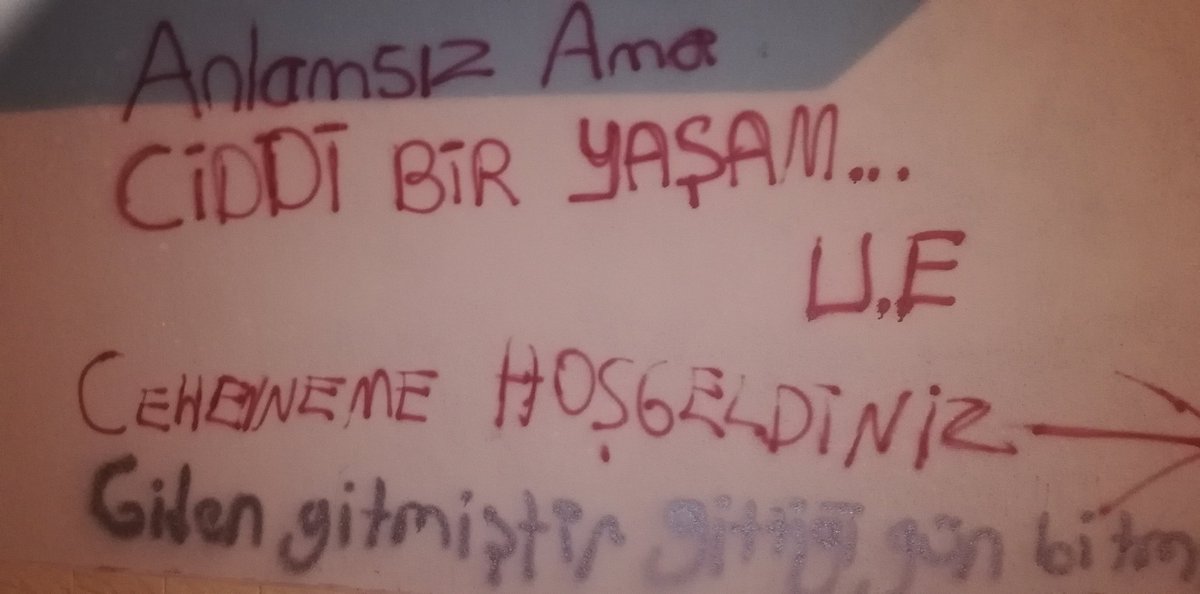 Anlamsız Ama
CİDDİ BİR YAŞAM...
U.E
CEHENNEME HOŞGELDİNİZ →
Giden gitmiştir gittiği gün bitm